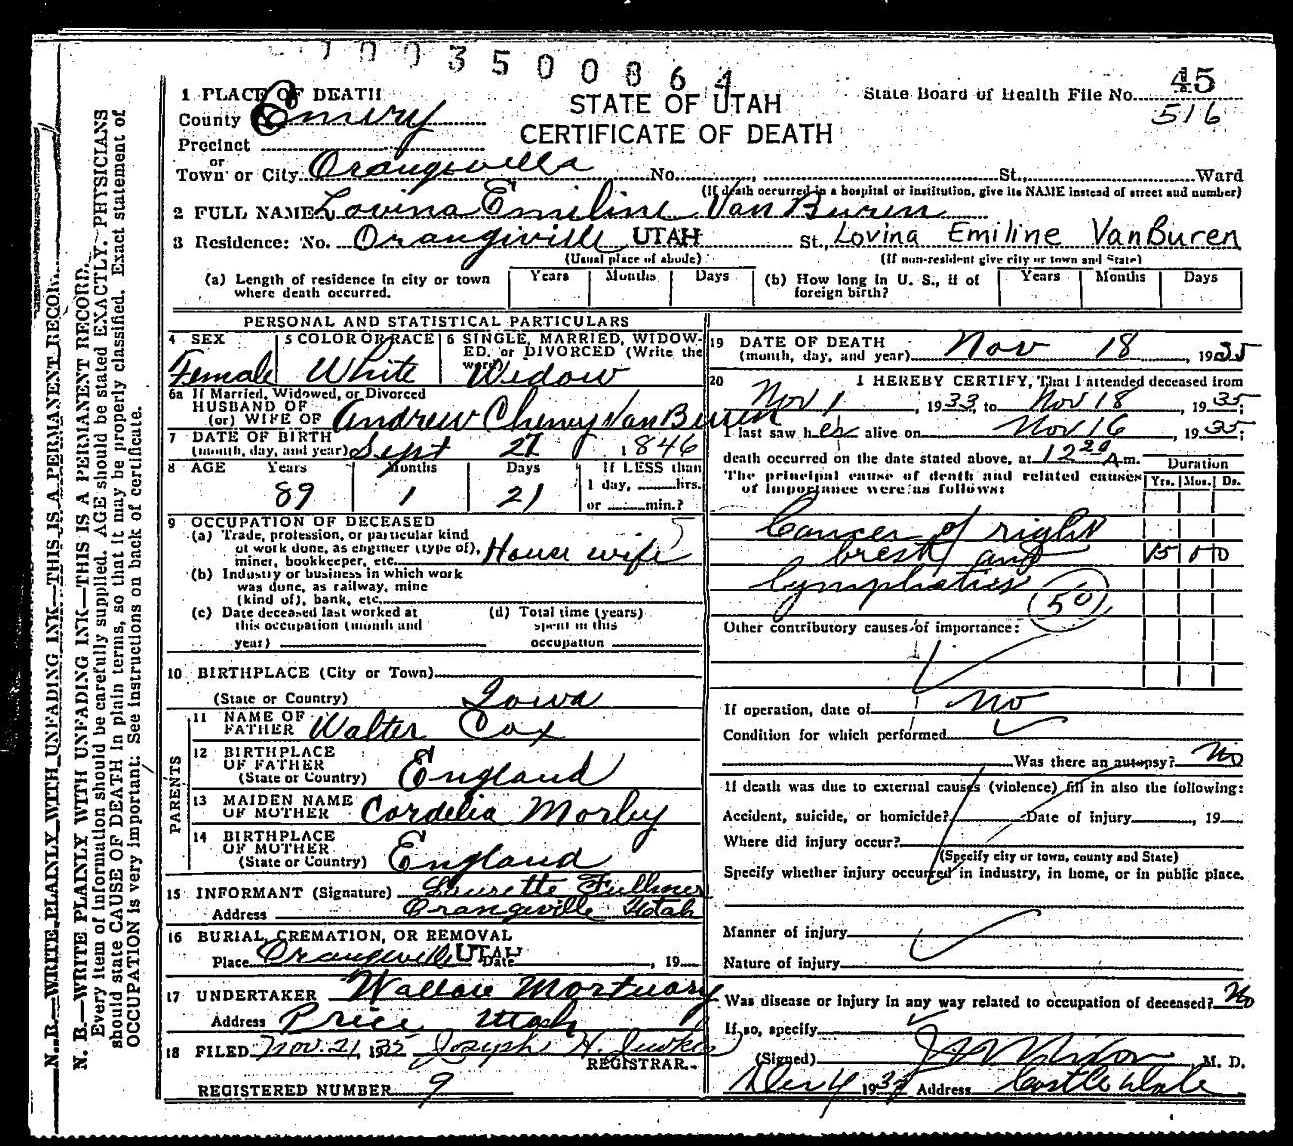 3500864
45
1 PLACE OF DEATH
STATE OF UTAH
State Board of Health File No.
516
County Emery
CERTIFICATE OF DEATH
Precinct
or
Town or City Orangeville No. , St., Ward
(If death occurred in a hospital or institution, give its NAME instead of street and number)
2 FULL NAME Lovina Emiline Van Buren
3 Residence: No. Orangiville UTAH St., Lovina Emiline VanBuren
(Usual place of abode) (If non-resident give city or town and State)
(a) Length of residence in city or town where death occurred. Years Months Days (b) How long in U. S., if of foreign birth? Years Months Days
PERSONAL AND STATISTICAL PARTICULARS
4 SEX Female
5 COLOR OR RACE White
6 SINGLE, MARRIED, WIDOWED, or DIVORCED (Write the word) Widow
6a If Married, Widowed, or Divorced
HUSBAND OF
(or) WIFE OF Andrew Cheny Van Buren
7 DATE OF BIRTH
(month, day, and year) Sept 27 1846
8 AGE Years Months Days If LESS than
89 1 21 1 day, hrs.
or min.?
9 OCCUPATION OF DECEASED
(a) Trade, profession, or particular kind
of work done, as engineer (type of),
miner, bookkeeper, etc. House wife
(b) Industry or business in which work
was done, as railway, mine
(kind of), bank, etc.
(c) Date deceased last worked at this occupation (month and year)
(d) Total time (years) spent in this occupation
10 BIRTHPLACE (City or Town)
(State or Country) Iowa
PARENTS
11 NAME OF FATHER Walter Cox
12 BIRTHPLACE OF FATHER
(State or Country) England
13 MAIDEN NAME OF MOTHER Cordelia Morley
14 BIRTHPLACE OF MOTHER
(State or Country) England
15 INFORMANT (Signature) Laurette Fullmer
Address Orangeville Utah
16 BURIAL, CREMATION, OR REMOVAL
Place Orangeville UTAH Date , 19
17 UNDERTAKER Wallace Mortuary
Address Price Utah
18 FILED Nov. 21 1935 Joseph H. Jewkes
REGISTRAR.
REGISTERED NUMBER 9
19 DATE OF DEATH
(month, day, and year) Nov 18, 1935
20 I HEREBY CERTIFY, That I attended deceased from
Nov 1, 1933, to Nov 18, 1935;
I last saw her alive on Nov 16, 1935;
death occurred on the date stated above, at 12 20 A m.
Duration
The principal cause of death and related causes of importance were as follows: Yrs. Mos. Ds.
Cancer of right
brest and 15 0 0
lymphatics
50
Other contributory causes of importance:
If operation, date of No
Condition for which performed
Was there an autopsy? No
If death was due to external causes (violence) fill in also the following:
Accident, suicide, or homicide? Date of injury , 19
Where did injury occur?
(Specify city or town, county and State)
Specify whether injury occurred in industry, in home, or in public place.
Manner of injury
Nature of injury
Was disease or injury in any way related to occupation of deceased? No
If so, specify
(Signed) M. D.
19 Address Castle Dale
N. B.—WRITE PLAINLY WITH UNFADING INK—THIS IS A PERMANENT RECORD.
N. B.—WRITE PLAINLY WITH UNFADING INK—THIS IS A PERMANENT RECORD.
Every item of information should be carefully supplied. AGE should be stated EXACTLY. PHYSICIANS
should state CAUSE OF DEATH in plain terms, so that it may be properly classified. Exact statement of
OCCUPATION is very important. See instructions on back of certificate.